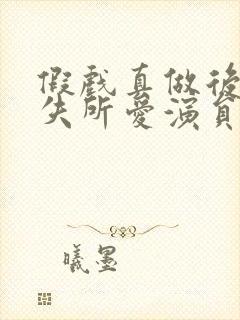 假戲真做後
失所愛演員
曦墨